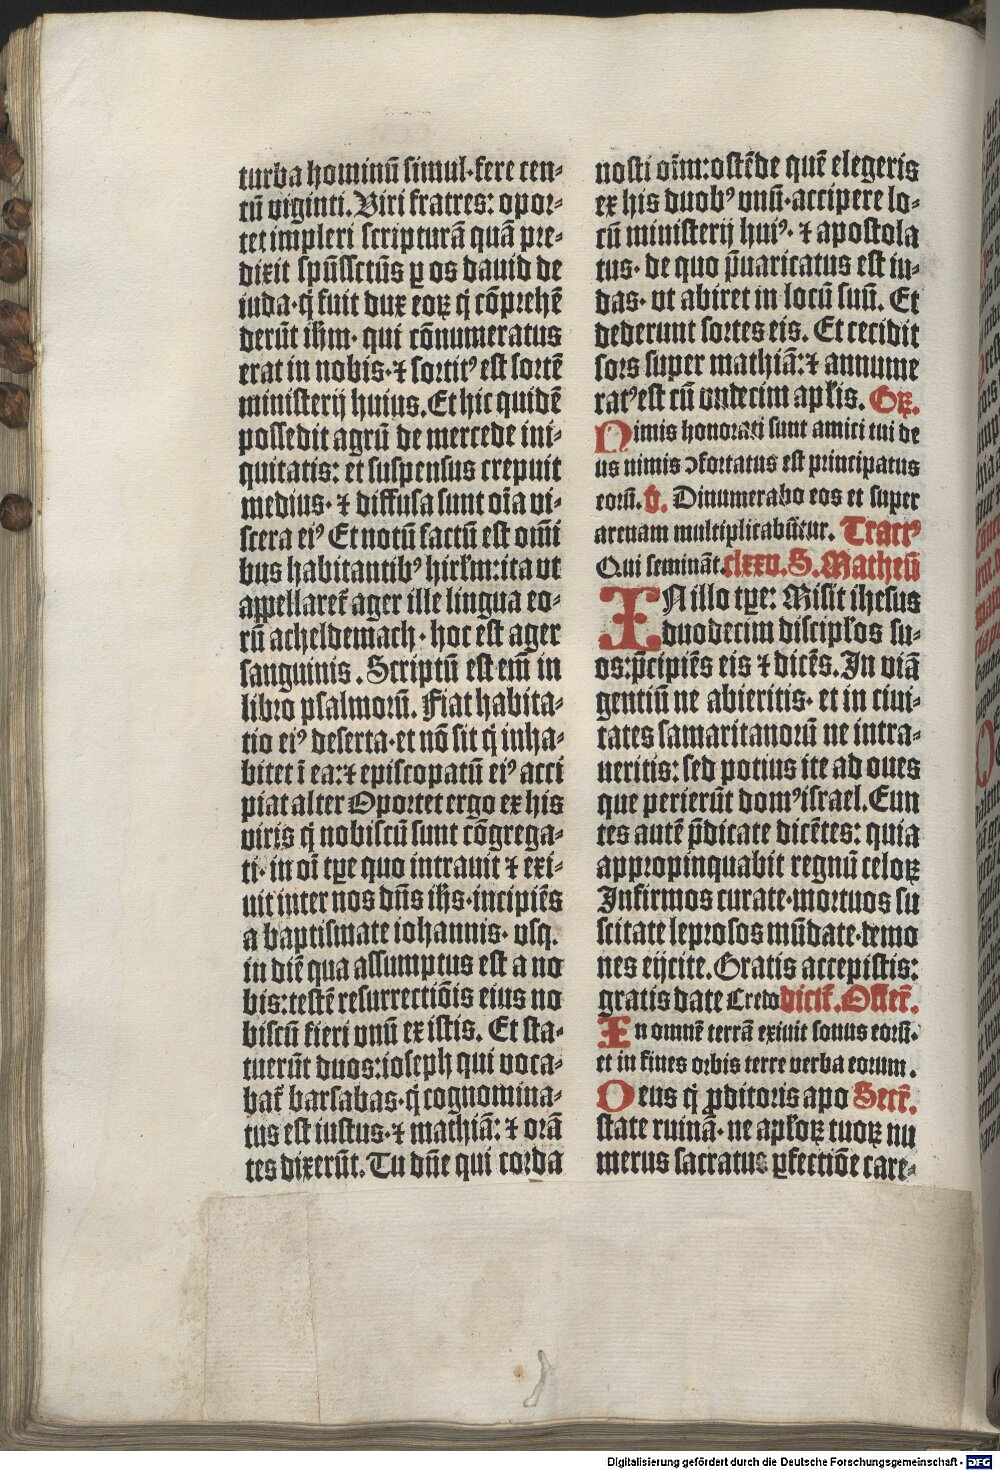 turba hominū simul·fere cen-
tū viginti. Viri fratres: opor-
tet impleri scripturā quā pre-
dixit spūssctūs ꝑ os dauid de
iuda·q̇ fuit dux eoꝝ q̇ cōprehē
derūt ih̄m· qui cōnumeratus
erat in nobis·⁊ sortitꝰ est sortē
ministerij huius. Et hic quidē
possedit agrū de mercede ini-
quitatis: et suspensus crepuit
medius· ⁊ diffusa sunt oīa vi-
scera eiꝰ Et notū factū est om̄i
bus habitantibꝰ hirl̄m:ita vt
appellaret̄ ager ille lingua eo-
rū acheldemach· hoc est ager
sanguinis. Scriptū est em̄ in
libro psalmorū. Fiat habita-
tio eiꝰ deserta·et nō sit q̇ inha-
bitet ī ea:⁊ episcopatū eiꝰ acci
piat alter Oportet ergo ex his
viris q̇ nobiscū sunt cōgrega-
ti· in oī tꝑe quo intrauit ⁊ exi-
uit inter nos dn̄s ih̄s·incipiēs
a baptismate iohannis· vsq.
in diē qua assumptus est a no
bis:testē resurrectiōis eius no
biscū fieri vnū ex istis. Et sta-
tuerūt duos:ioseph qui voca-
bat̄ barsabas·q̇ cognomina-
tus est iustus·⁊ mathiā: ⁊ orā
tes dixerūt. Tu dn̄e qui corda
nosti oīm:ostēde quē elegeris
ex his duobꝰ vnū·accipere lo-
cū ministerij huiꝰ· ⁊ apostola
tus· de quo p̄uaricatus est iu-
das· vt abiret in locū suū. Et
dederunt sortes eis. Et cecidit
sors super mathiā:⁊ annume
ratꝰ est cū vndecim apl̄is. Gꝝ.
Nimis honorati sunt amici tui de
us nimis ↄfortatus est principatus
eorū. v. Dinumerabo eos et super
arenam multiplicabūtur. Tractꝰ
Qui semināt. clxxv. S. Matheū
IN illo tꝑe: Misit ihesus
duodecim discipl̄os su-
os:p̄cipiēs eis ⁊ dicēs. In viā
gentiū ne abieritis· et in ciui-
tates samaritanorū ne intra-
ueritis: sed potius ite ad oues
que perierūt domꝰ israel. Eun
tes autē p̄dicate dicētes: quia
appropinquabit regnū celoꝝ
Infirmos curate·mortuos su
scitate leprosos mūdate·demo
nes eijcite. Gratis accepistis:
gratis date Credo dicit̄. Offert̄.
In omnē terrā exiuit sonus eorū·
et in fines orbis terre verba eorum.
Deus q̇ ꝓditoris apo Secr̄.
state ruinā· ne apl̄oꝝ tuoꝝ nu
merus sacratus ꝑfectiōe care-
Digitalisierung gefördert durch die Deutsche Forschungsgemeinschaft - DFG